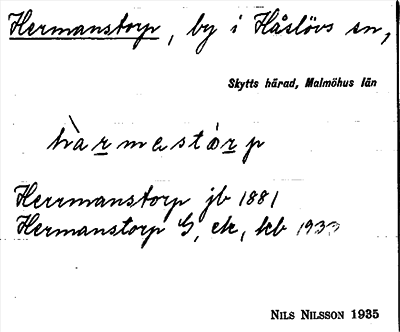 Hermanstorp, by i Håslövs sn,
Skytts härad, Malmöhus län
hàrmastårp
Herrmanstorp jb 1881
Hermanstorp G, ek, kb 1933
NILS NILSSON 1935